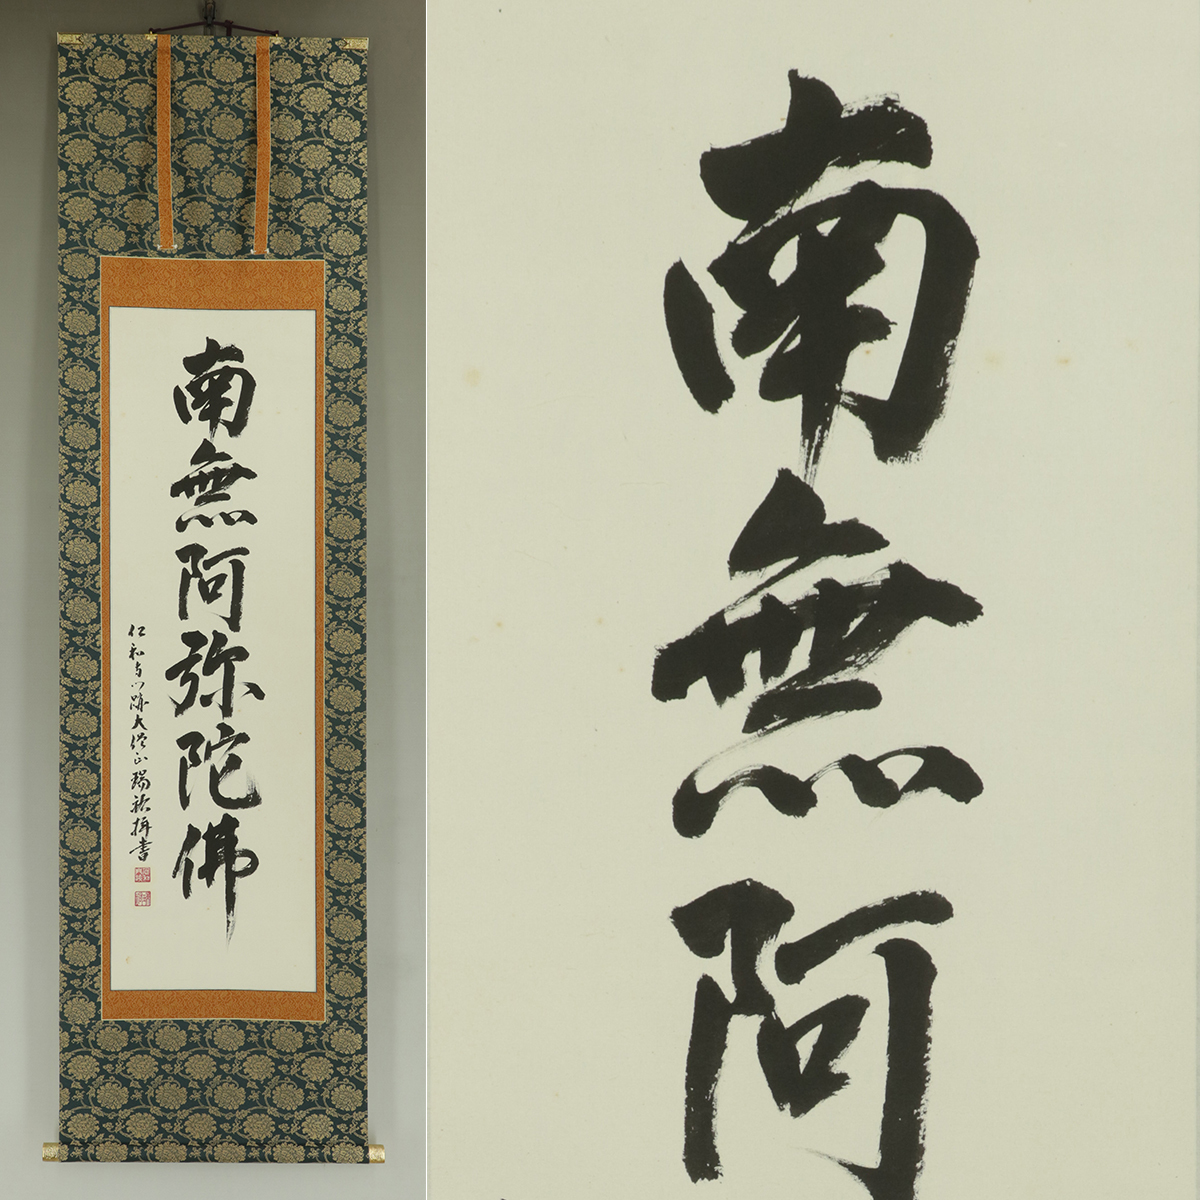 南無阿弥陀佛
仁和寺門跡大僧正瑞祥拝書
南無阿